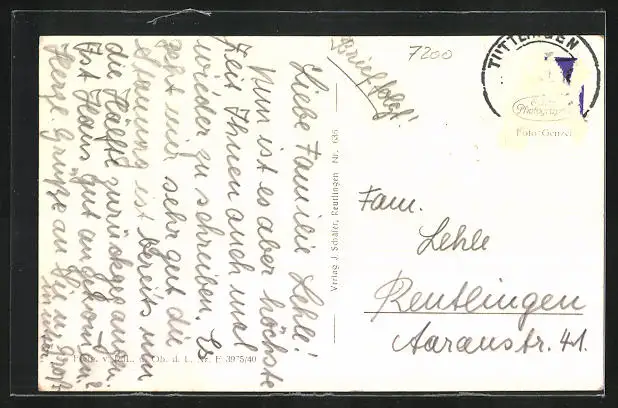 Liebe Familie Lehle!
Nun ist es aber höchste
Zeit Ihnen auch mal
wieder zu schreiben. Es
geht mir sehr gut die
Stauung ist bereits um
die Hälfte zurückgegangen.
Ist Hans gut angekommen?
Herzl. Grüße an Sie u.
Brief folgt!
7200
TUTTLINGEN
Foto-Genzel
Verlag J. Schäfer, Reutlingen Nr. 636
Fam.
Lehle
Reutlingen
Aaraustr. 41.
d. Ob. d. L. Nr. F 3975/40